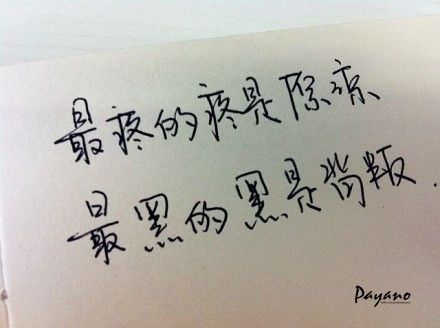 最疼的疼是原谅
最黑的黑是背叛.
Payano